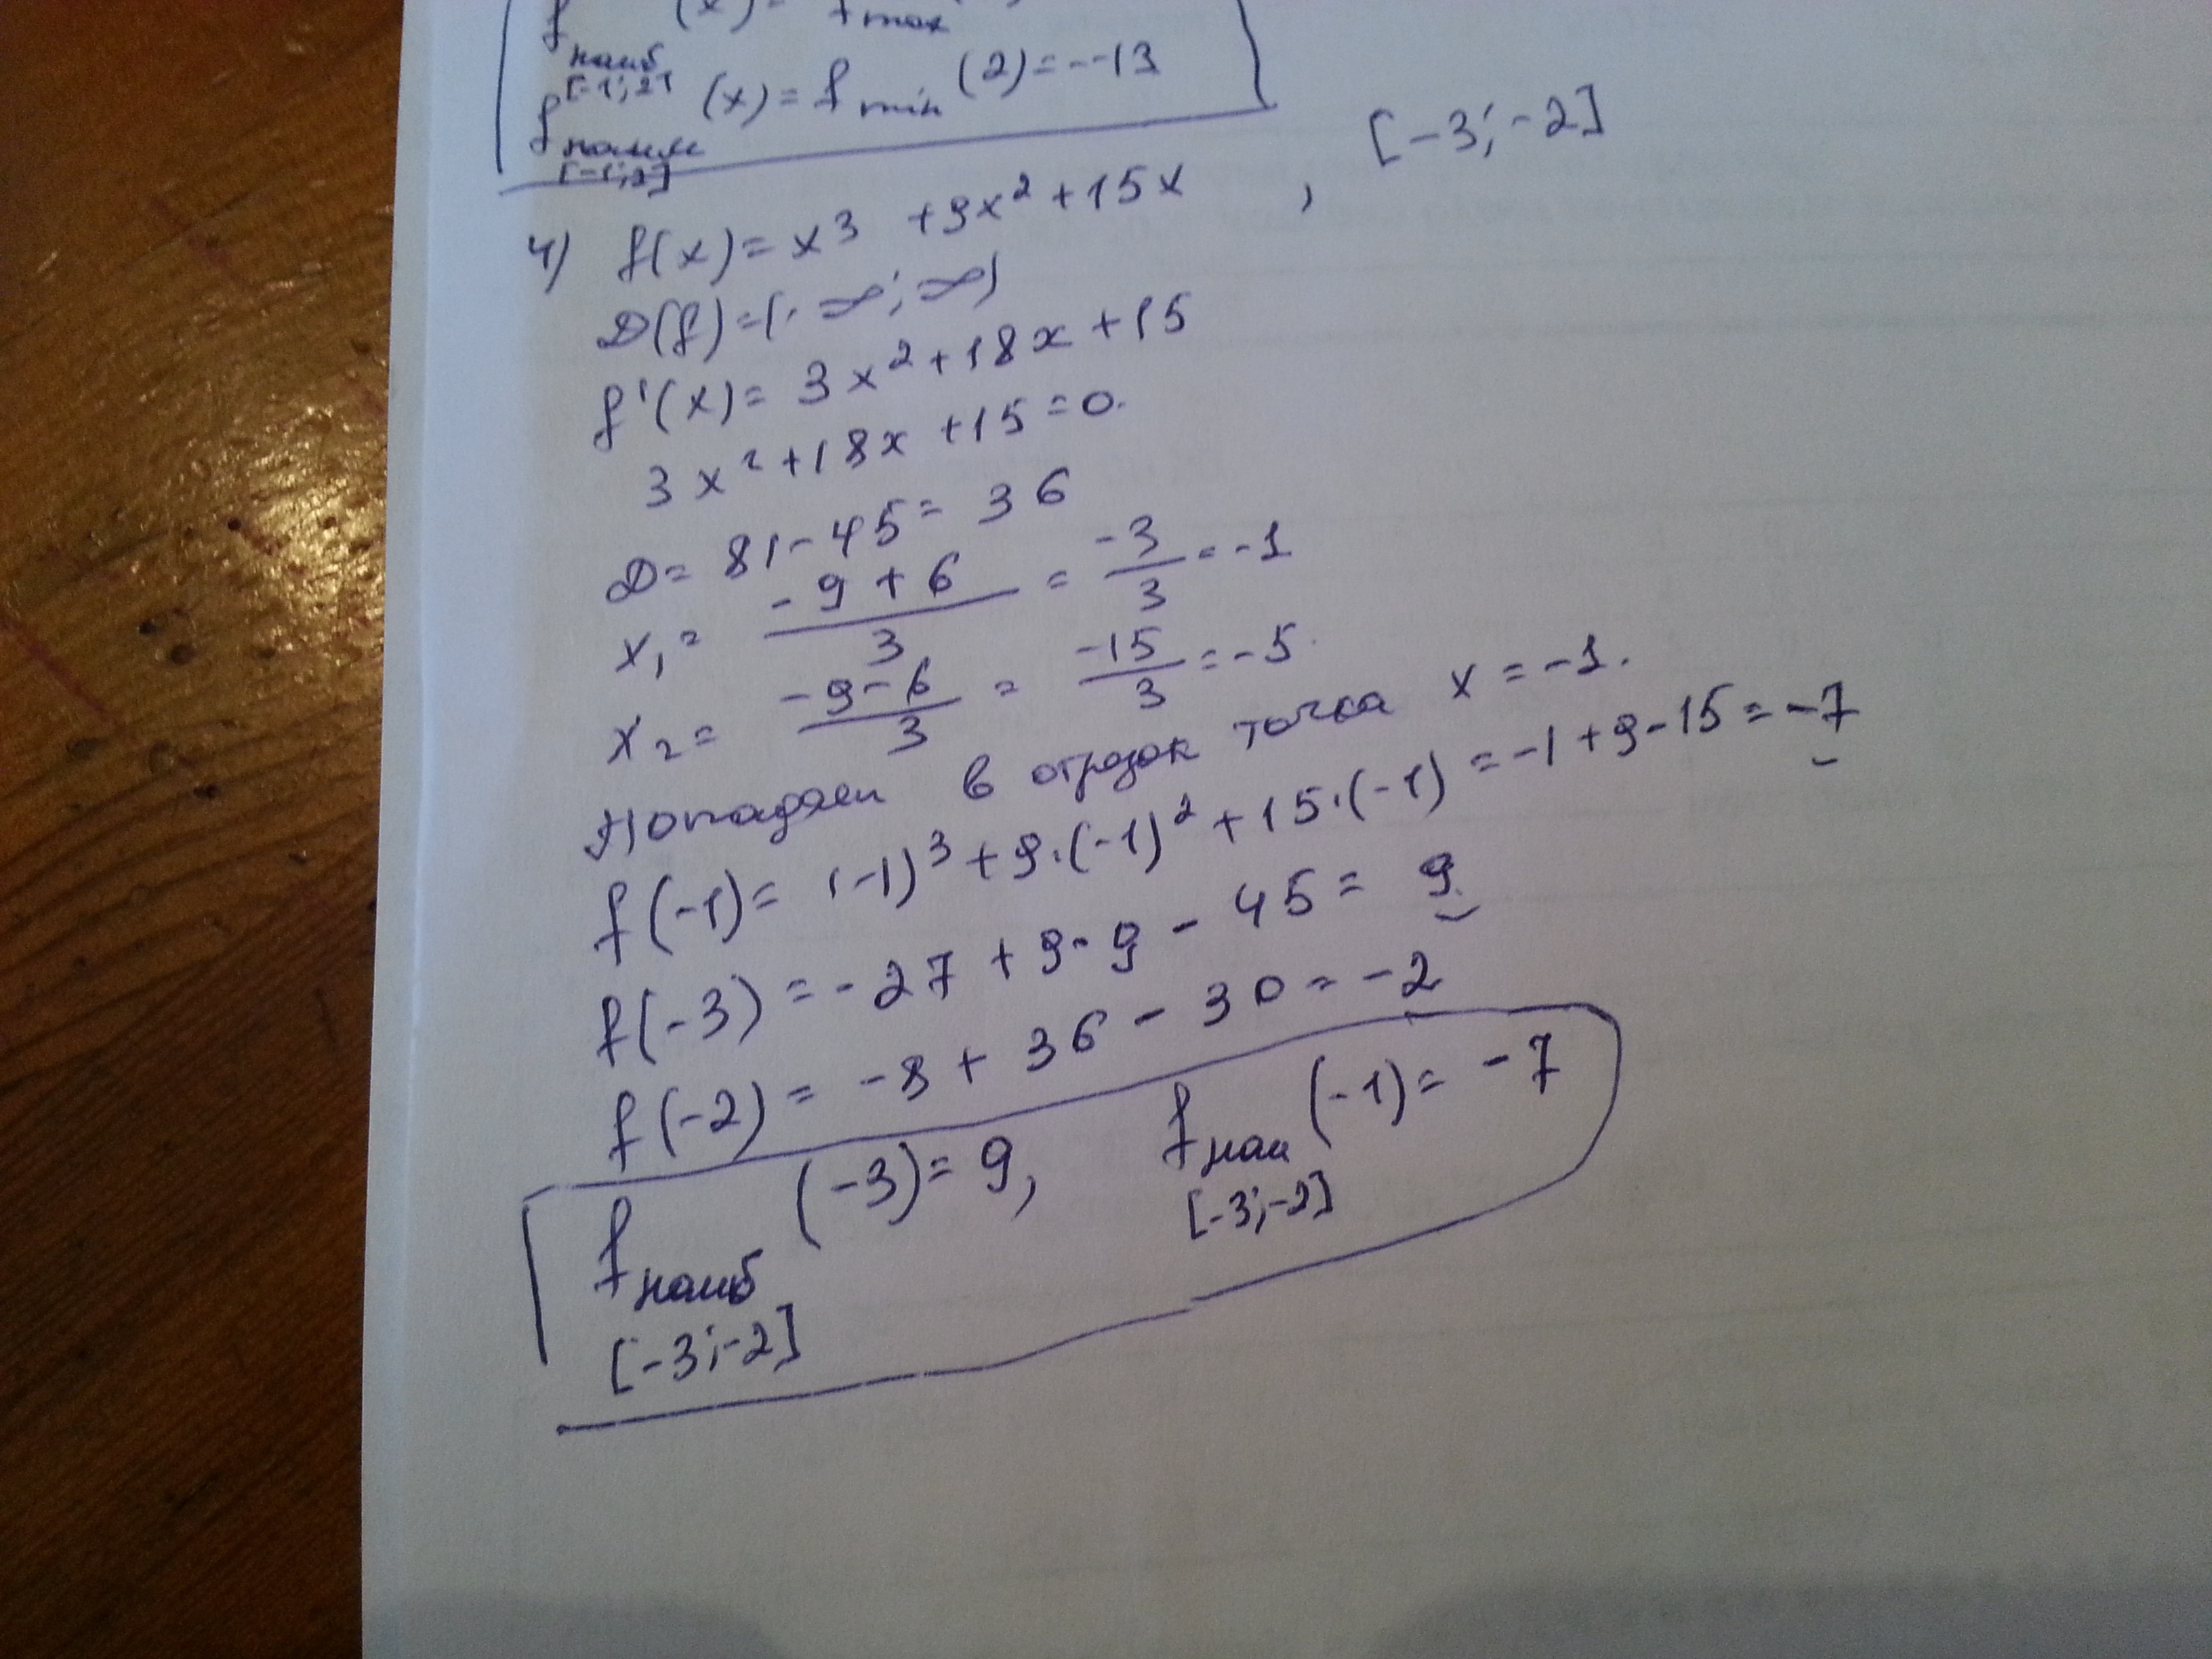 f наиб [-1;2] (x) = f max
f наим [-1;2] (x) = f min (2) = -13
4) f(x) = x³ + 9x² + 15x , [-3; -2]
D(f) = (-∞; ∞)
f'(x) = 3x² + 18x + 15
3x² + 18x + 15 = 0.
D = 81 - 45 = 36
x₁ = (-9 + 6)/3 = -3/3 = -1
x₂ = (-9 - 6)/3 = -15/3 = -5.
Попадает в отрезок точка x = -1.
f(-1) = (-1)³ + 9·(-1)² + 15·(-1) = -1 + 9 - 15 = -7
f(-3) = -27 + 9·9 - 45 = 9
f(-2) = -8 + 36 - 30 = -2
f наиб [-3;-2] (-3) = 9, f наи [-3;-2] (-1) = -7